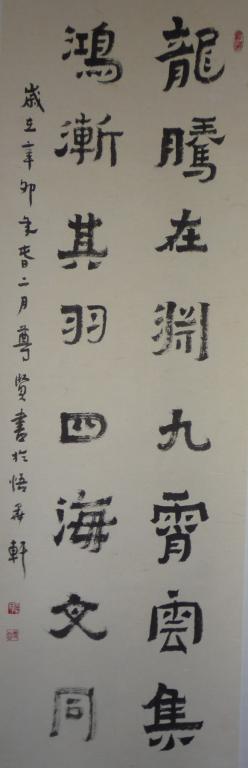 龍騰在淵九霄雲集
鴻漸其羽四海文同
歲在辛卯年春二月尊賢書於悟軒